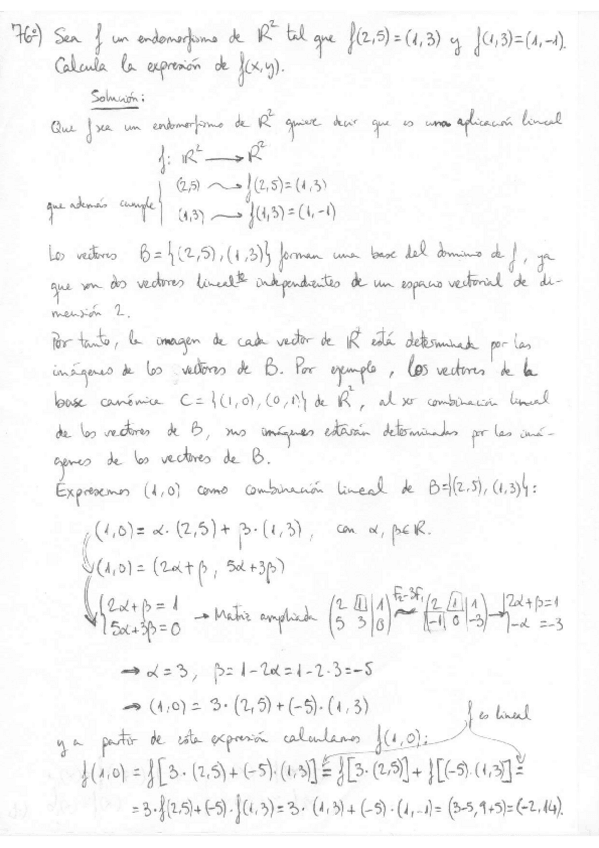 76º) Sea f un endomorfismo de ℝ² tal que f(2,5)=(1,3) y f(1,3)=(1,-1).
Calcula la expresión de f(x,y).
Solución:
Que f sea un endomorfismo de ℝ² quiere decir que es una aplicación lineal
f: ℝ² → ℝ²
(2,5) ⇝ f(2,5)=(1,3)
que además cumple {
(1,3) ⇝ f(1,3)=(1,-1)
Los vectores B={(2,5),(1,3)} forman una base del dominio de f, ya
que son dos vectores linealᵗᵉ independientes de un espacio vectorial de di-
mensión 2.
Por tanto, la imagen de cada vector de ℝ² está determinada por las
imágenes de los vectores de B. Por ejemplo, los vectores de la
base canónica C={(1,0),(0,1)} de ℝ², al ser combinación lineal
de los vectores de B, sus imágenes estarán determinadas por las imá-
genes de los vectores de B.
Expresemos (1,0) como combinación lineal de B={(2,5),(1,3)}:
(1,0)=α·(2,5)+β·(1,3), con α,β∈ℝ.
(1,0)=(2α+β, 5α+3β)
{2α+β=1 5α+3β=0 → Matriz ampliada (2 1 | 1 5 3 | 0) F₂-3F₁ ~ (2 1 | 1 -1 0 | -3) → {2α+β=1 -α=-3
→ α=3, β=1-2α=1-2·3=-5
→ (1,0)=3·(2,5)+(-5)·(1,3)
f es lineal
y a partir de esta expresión calculamos f(1,0):
f(1,0)=f[3·(2,5)+(-5)·(1,3)]=f[3·(2,5)]+f[(-5)·(1,3)]=
=3·f(2,5)+(-5)·f(1,3)=3·(1,3)+(-5)·(1,-1)=(3-5,9+5)=(-2,14).